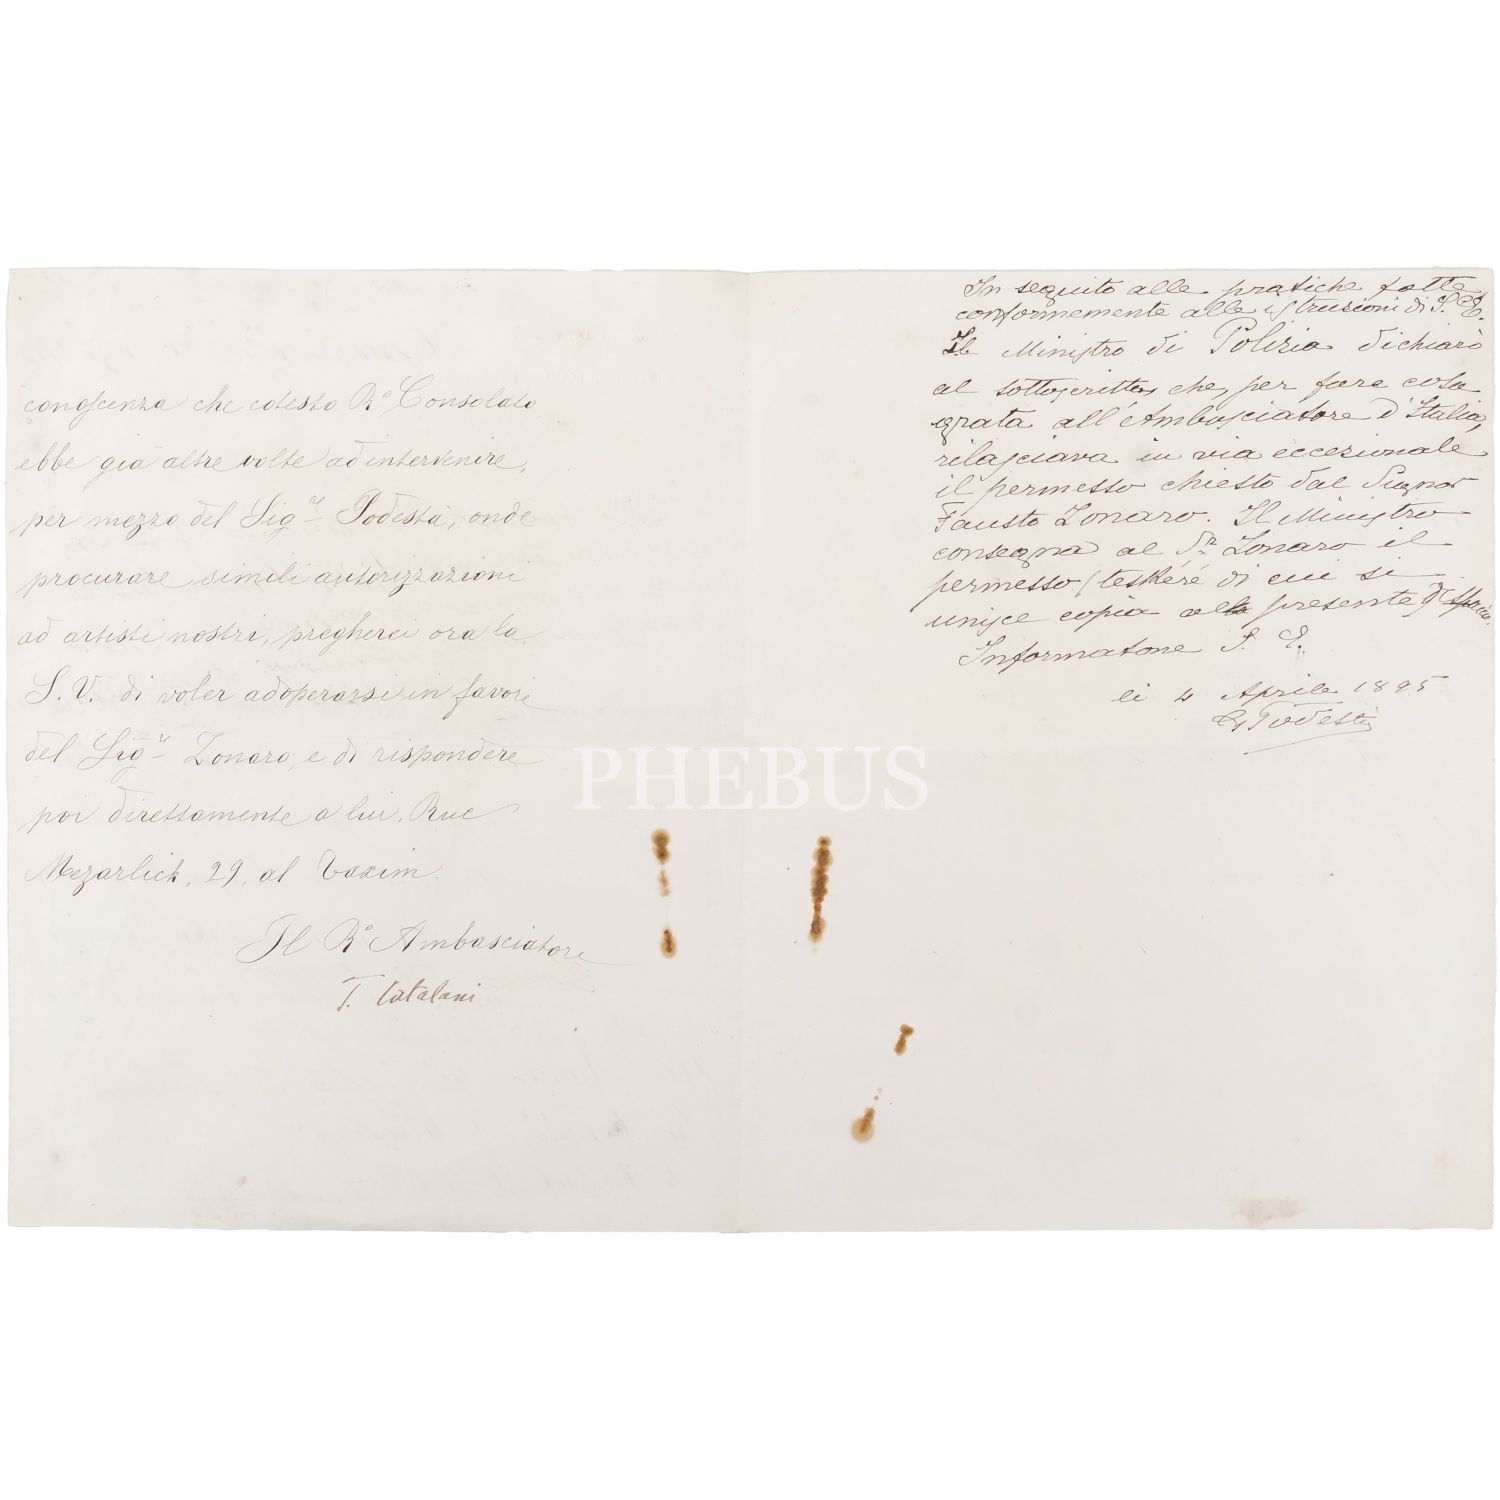 conoscenza che cotesto R.º Consolato
ebbe già altre volte ad intervenire,
per mezzo del Sig.r Podestà, onde
procurare simili autorizzazioni
ad artisti nostri, pregherei ora la
S. V. di voler adoperarsi in favore
del Sig.r Zonaro, e di rispondere
poi direttamente a lui. Rue
Mezarlick, 29, al Taxim.
Il R.º Ambasciatore
T. Catalani
In seguito alle pratiche fatte
conformemente alle istruzioni di S. E.
Il Ministro di Polizia dichiarò
al sottoscritto, che, per fare cosa
grata all'Ambasciatore d'Italia,
rilasciava in via eccezionale
il permesso chiesto dal Signor
Fausto Zonaro. Il Ministro
consegna al Sr. Zonaro il
permesso (teskéré di cui si
unisce copia alla presente
Informatone S. E.
li 4 Aprile 1895
G Podestà
PHEBUS